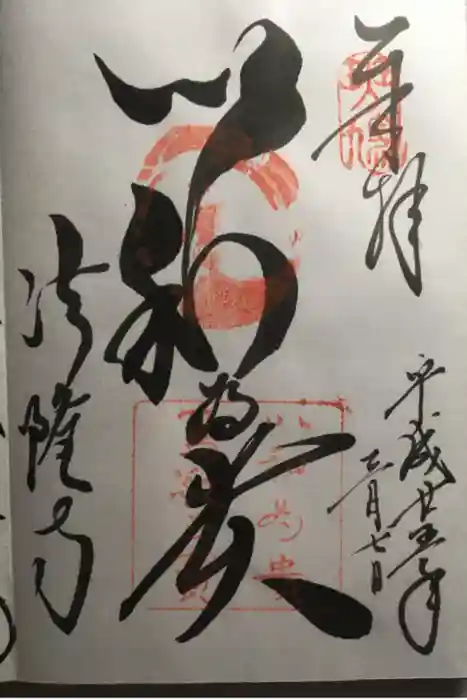 奉拝
平成廿五年
三月七日
以和為貴
法隆寺